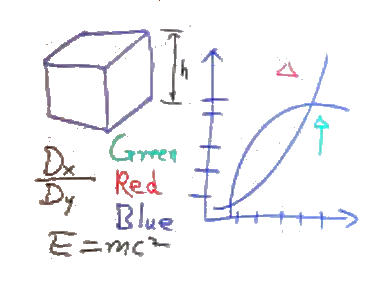 h
Dx
Dy
Green
Red
Blue
E = mc²